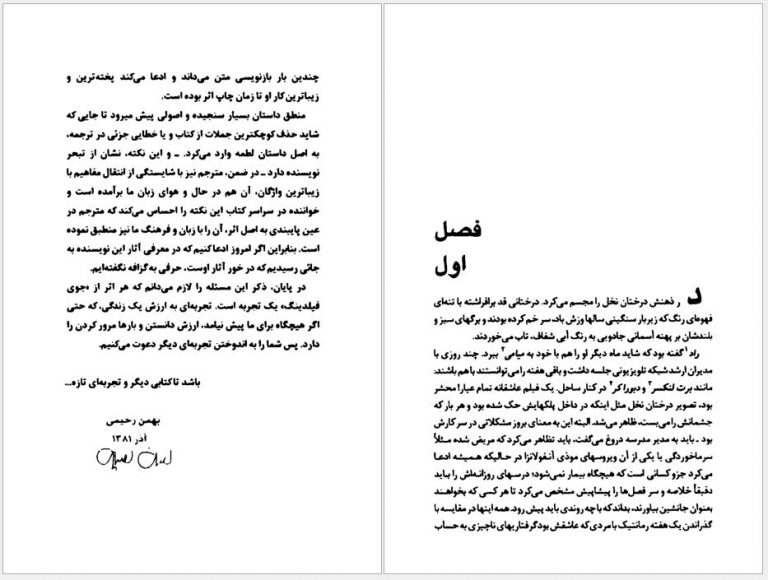 چندین بار بازنویسی متن می‌داند و ادعا می‌کند پخته‌ترین و
زیباترین کار او تا زمان چاپ اثر بوده است.
منطق داستان بسیار سنجیده و اصولی پیش میرود تا جایی که
شاید حذف کوچکترین جملات از کتاب و یا خطایی جزئی در ترجمه،
به اصل داستان لطمه وارد می‌کرد. ـ و این نکته، نشان از تبحر
نویسنده دارد ـ در ضمن، مترجم نیز با شایستگی از انتقال مفاهیم با
زیباترین واژگان، آن هم در حال و هوای زبان ما برآمده است و
خواننده در سراسر کتاب این نکته را احساس می‌کند که مترجم در
عین پایبندی به اصل اثر، آن را با زبان و فرهنگ ما نیز منطبق نموده
است. بنابراین اگر امروز ادعا کنیم که در معرفی آثار این نویسنده به
جائی رسیدیم که در خور آثار اوست، حرفی به گزافه نگفته‌ایم.
در پایان، ذکر این مسئله را لازم می‌دانم که هر اثر از «جوی
فیلدینگ» یک تجربه است. تجربه‌ای به ارزش یک زندگی، که حتی
اگر هیچگاه برای ما پیش نیامد، ارزش دانستن و بارها مرور کردن را
دارد. پس شما را به اندوختن تجربه‌ای دیگر دعوت می‌کنیم.
باشد تا کتابی دیگر و تجربه‌ای تازه...
بهمن رحیمی
آذر ۱۳۸۱
فصل
اول
در ذهنش درختان نخل را مجسم می‌کرد. درختانی قد برافراشته با تنه‌ای
قهوه‌ای رنگ که زیر بار سنگینی سالها وزش باد، سر خم کرده بودند و برگهای سبز و
بلندشان بر پهنه آسمانی جادویی به رنگ آبی شفاف، تاب می‌خوردند.
راد۱ گفته بود که شاید ماه دیگر او را هم با خود به میامی۲ ببرد. چند روزی با
مدیران ارشد شبکه تلویزیونی جلسه داشت و باقی هفته را می‌توانستند با هم باشند:
مانند برت لنکستر۳ و دبورا کر۴ در کنار ساحل. یک فیلم عاشقانه تمام عیار! محشر
بود، تصویر درختان نخل مثل اینکه در داخل پلکهایش حک شده بود و هر بار که
چشمانش را می‌بست، ظاهر می‌شد. البته این به معنای بروز مشکلاتی در سر کارش
بود ـ باید به مدیر مدرسه دروغ می‌گفت، باید تظاهر می‌کرد که مریض شده مثلاً
سرماخوردگی یا یکی از آن ویروسهای موذی آنفولانزا در حالیکه همیشه ادعا
می‌کرد جزو کسانی است که هیچگاه بیمار نمی‌شود؛ درسهای روزانه‌اش را باید
دقیقاً خلاصه و سر فصل‌ها را پیشاپیش مشخص می‌کرد تا هر کسی که بخواهند
بعنوان جانشین بیاورند، بداند که با چه روندی باید پیش رود. همه اینها در مقایسه با
گذراندن یک هفته رمانتیک با مردی که عاشقش بود گرفتاریهای ناچیزی به حساب